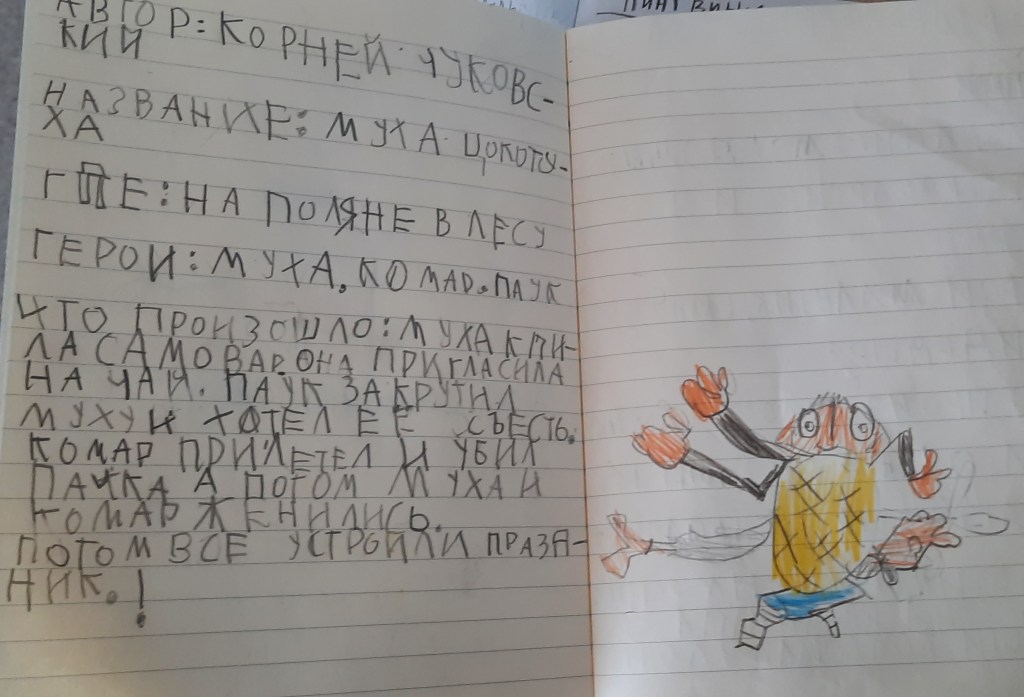 АВТОР: КОРНЕЙ ЧУКОВС-
КИЙ
НАЗВАНИЕ: МУХА ЦОКОТУ-
ХА
ГДЕ: НА ПОЛЯНЕ В ЛЕСУ
ГЕРОИ: МУХА. КОМАР. ПАУК
ЧТО ПРОИЗОШЛО: МУХА КПИ-
ЛА САМОВАР. ОНА ПРИГЛАСИЛА
НА ЧАЙ. ПАУК ЗАКРУТИЛ
МУХУ И ХОТЕЛ ЕЁ СЪЕСТЬ.
КОМАР ПРИЛЕТЕЛ И УБИЛ
ПАУКА А ПОТОМ МУХА И
КОМАР ЖЕНИЛИСЬ.
ПОТОМ ВСЕ УСТРОИЛИ ПРАЗД-
НИК.!